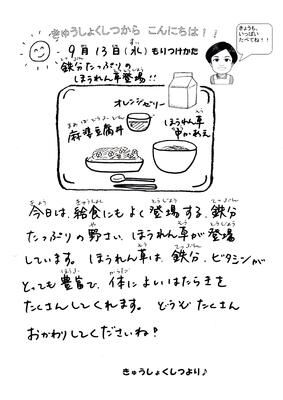 きゅうしょくしつから こんにちは!!
きょうも、
いっぱい
たべてね!!
9月13日(水)もりつけかた
鉄分たっぷりの
ほうれん草登場!!
オレンジゼリー
麻婆豆腐丼
ほうれん草
中かスープ
今日は、給食にもよく登場する、鉄分
たっぷりの野さい、ほうれん草が登場
しています。ほうれん草は、鉄分、ビタミンが
とっても豊富で、体によいはたらきを
たくさんしてくれます。どうぞたくさん
おかわりしてくださいね!
きゅうしょくしつより♪